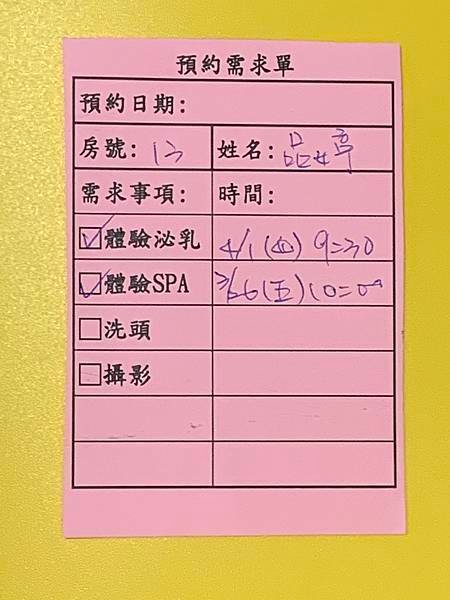 預約需求單
預約日期:
房號: 13 姓名: 品婷
需求事項: 時間:
體驗泌乳 4/1(四) 9=30
體驗SPA 3/26(五) 10=00
洗頭
攝影